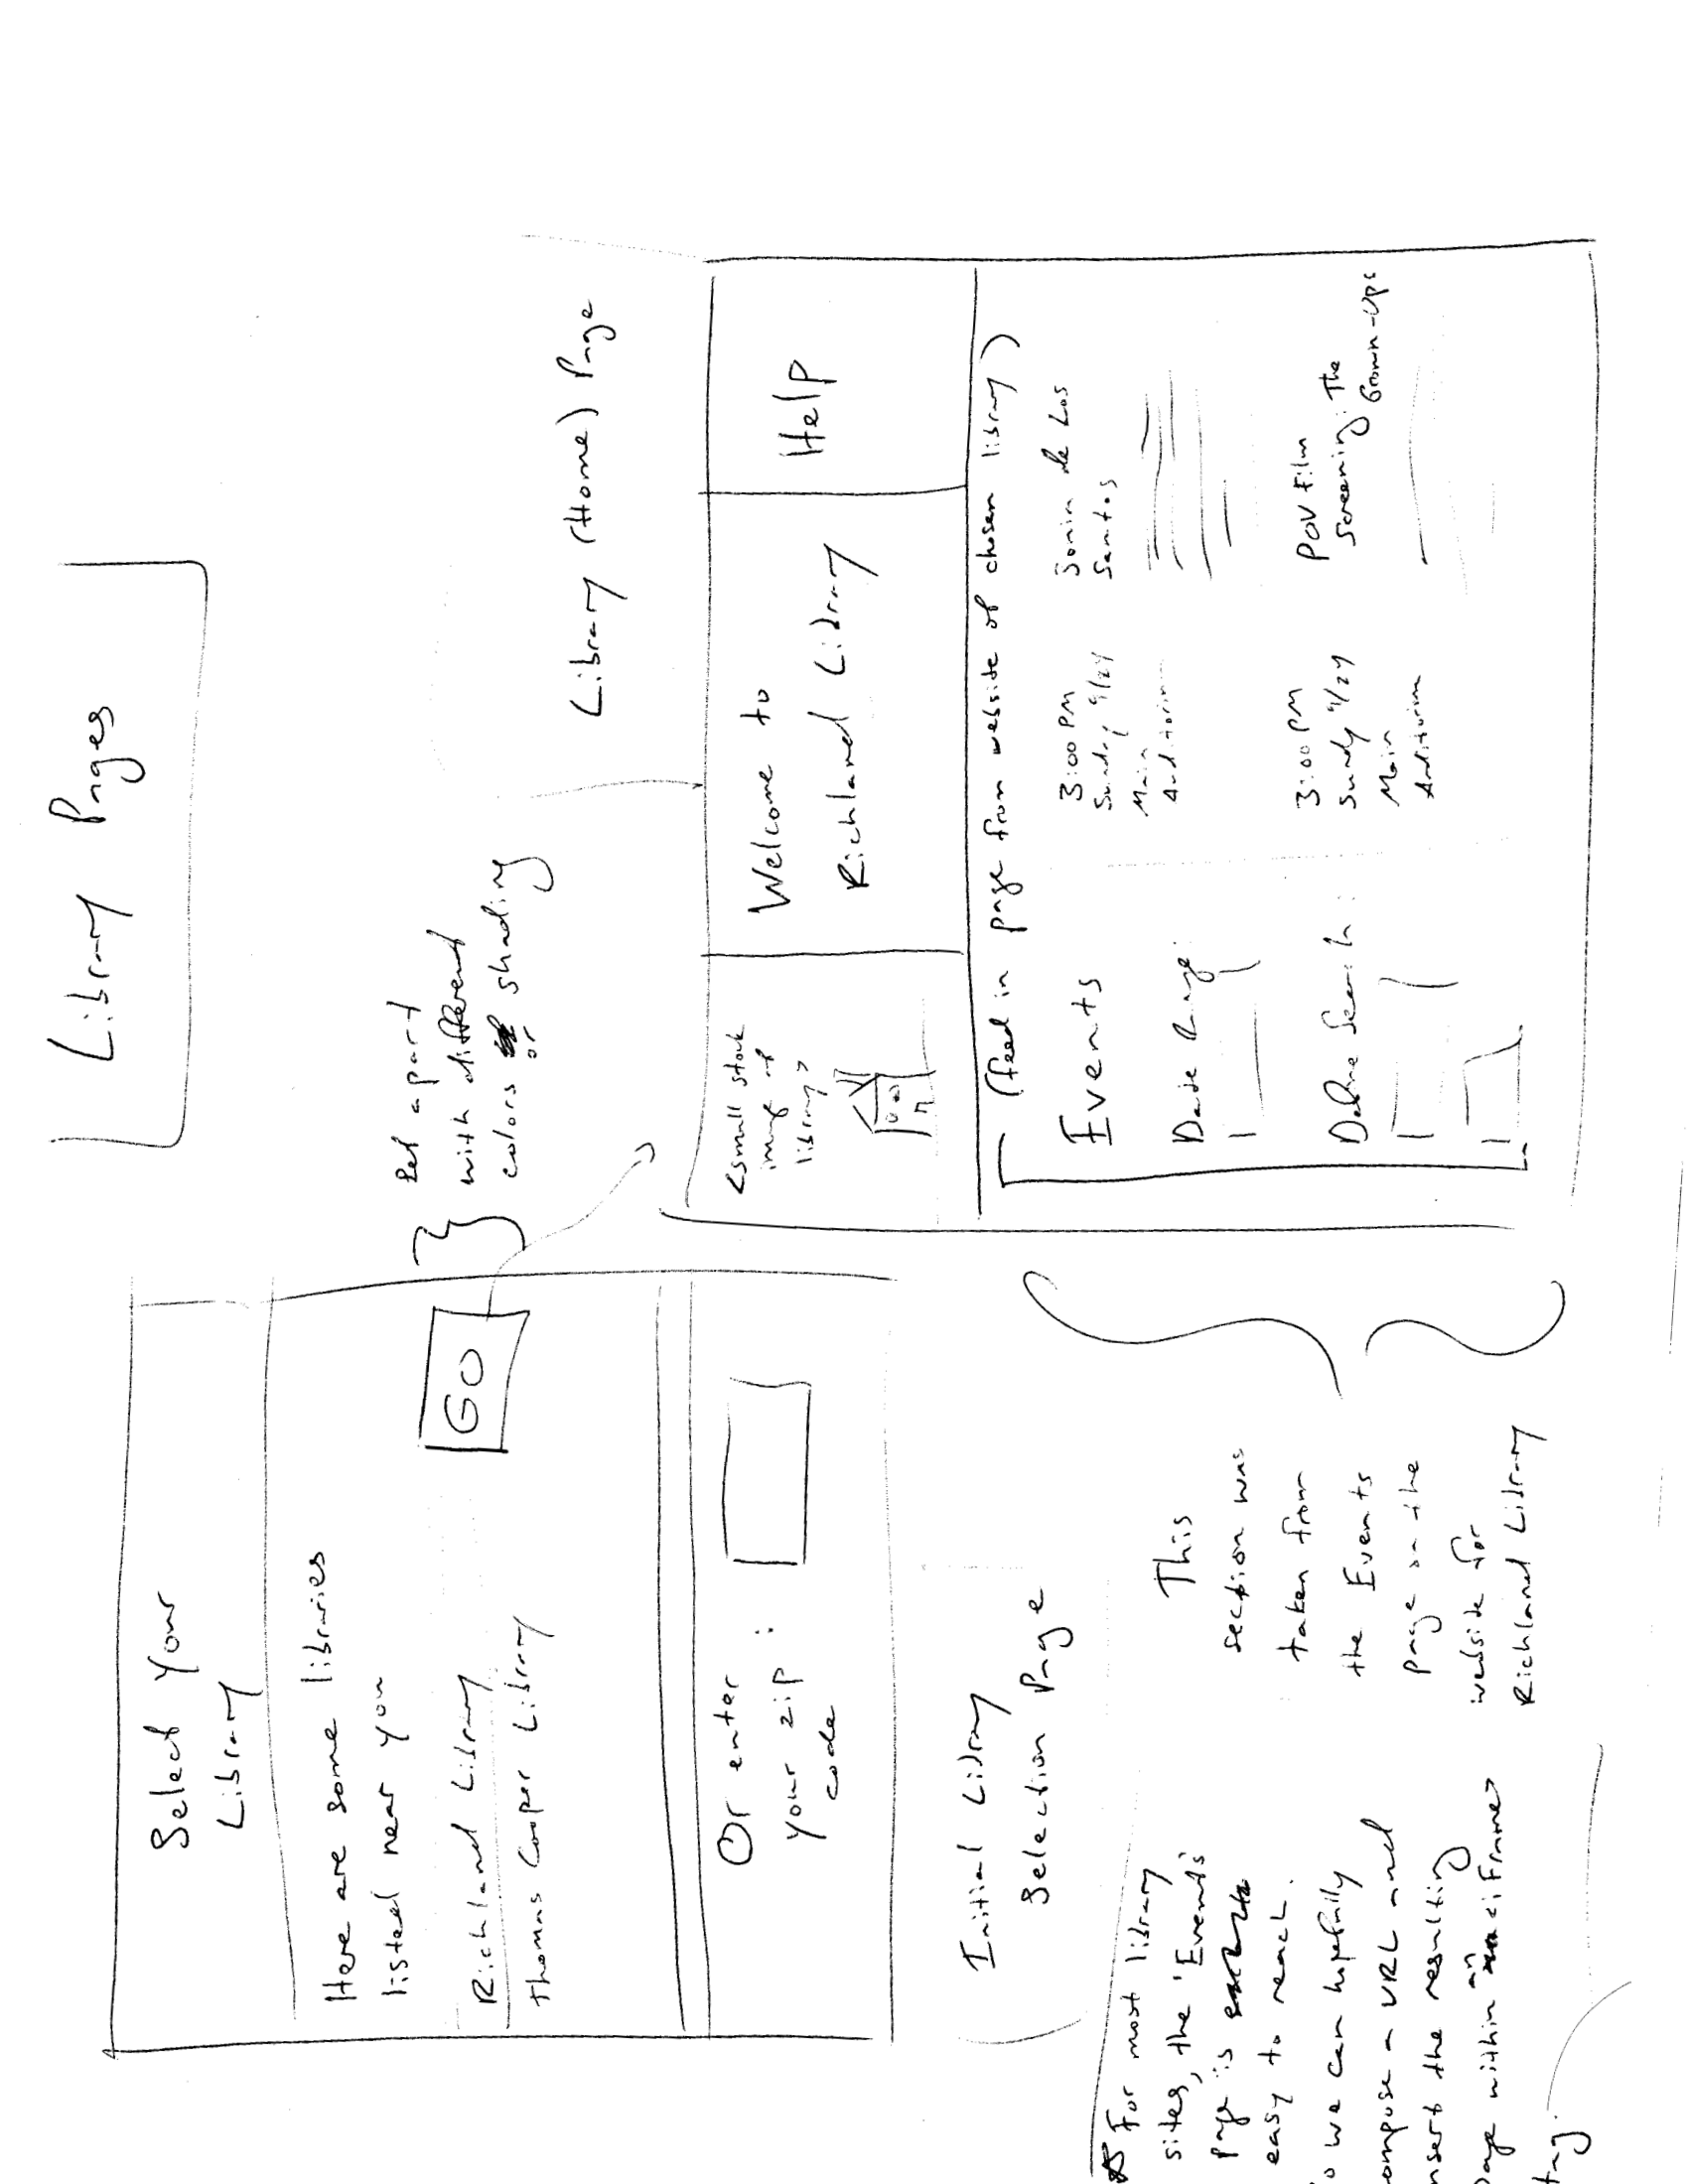 Library Pages
Select your
Library
Here are some libraries
listed near you
Richland Library
GO
Thomas Cooper Library
Or enter
your zip :
code
Initial Library
Selection Page
Set apart
with different
colors or shading
Library (Home) Page
<small stock
image of
library>
Welcome to
Richland Library
Help
(feed in page from website of chosen library)
Events
Date Range:
Define Search:
3:00 PM
Sunday 9/24
Main
Auditorium
Sonia de Los
Santos
3:00 PM
Sunday 9/24
Main
Auditorium
POV Film
Screening: The
Grown-Ups
This
section was
taken from
the Events
page on the
website for
Richland Library
For most library
sites, the 'Events'
page is
easy to reach.
o we can hopefully
ompose a URL and
nsert the resulting
page within an iFrame
tag.